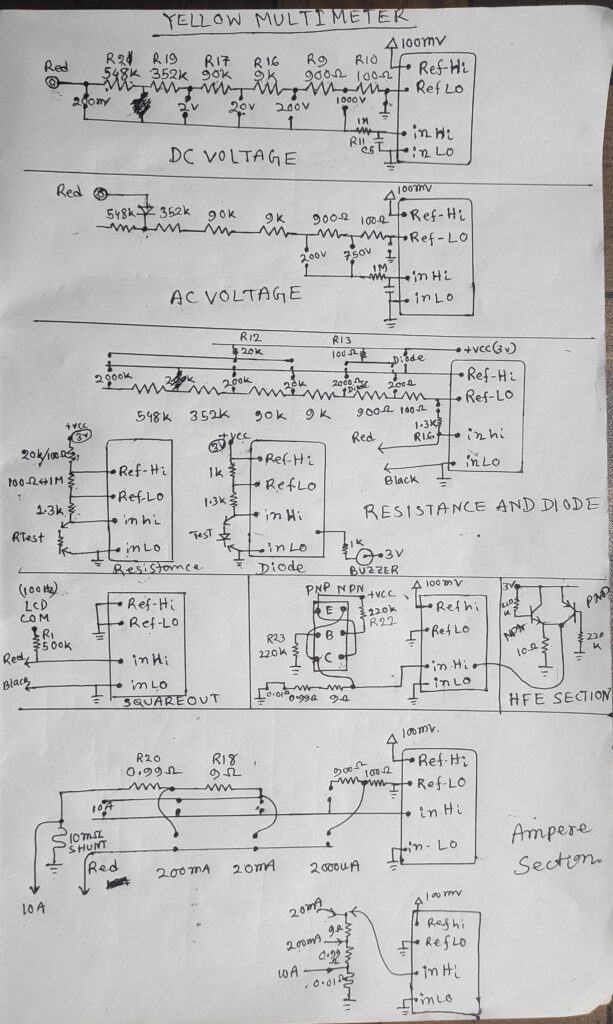 YELLOW MULTIMETER
100mv
Red
R21 R19 R17 R16 R9 R10
548k 352k 90k 9k 900Ω 100Ω
Ref-Hi
Ref LO
200mv 2V 20V 200V 1000V
1M
R11
C5
in Hi
in LO
DC VOLTAGE
100mv
Red
548k 352k 90k 9k 900Ω 100Ω
Ref-Hi
Ref-LO
200V 750V
1M
in Hi
in LO
AC VOLTAGE
R12 R13
20k 100Ω
Diode
+VCC(3V)
2000k 200k 20k 2000Ω 200Ω
Diode
548k 352k 90k 9k 900Ω 100Ω
Ref-Hi
Ref-LO
1.3k
R16
in hi
in LO
Red
Black
RESISTANCE AND DIODE
+VCC
3V
20k/100Ω
100Ω↔1M
1.3k
RTest
Ref-Hi
Ref LO
in hi
in LO
Resistance
+VCC
3V
1k
1.3k
Test
Ref-Hi
Ref LO
in Hi
in LO
Diode
1k
3V
BUZZER
(100Hz)
LCD
COM
R1
500k
Red
Black
Ref-Hi
Ref-LO
in Hi
in LO
SQUAREOUT
PNP NPN
+VCC
E
B
C
220k
R22
R23
220k
0.01Ω 0.99Ω 9Ω
100mv
Ref hi
Ref LO
in Hi
in LO
3V
220
K
NPN
PNP
10Ω
220
K
HFE SECTION
100mv
R20 R18
0.99Ω 9Ω
900Ω 100Ω
Ref-Hi
Ref-LO
in Hi
in-LO
10A
10mΩ
SHUNT
Red
200mA 20mA 2000uA
10A
Ampere
Section
100mv
20mA
9Ω
200mA
0.99
Ω
10A
0.01Ω
Ref hi
Ref LO
in Hi
in LO